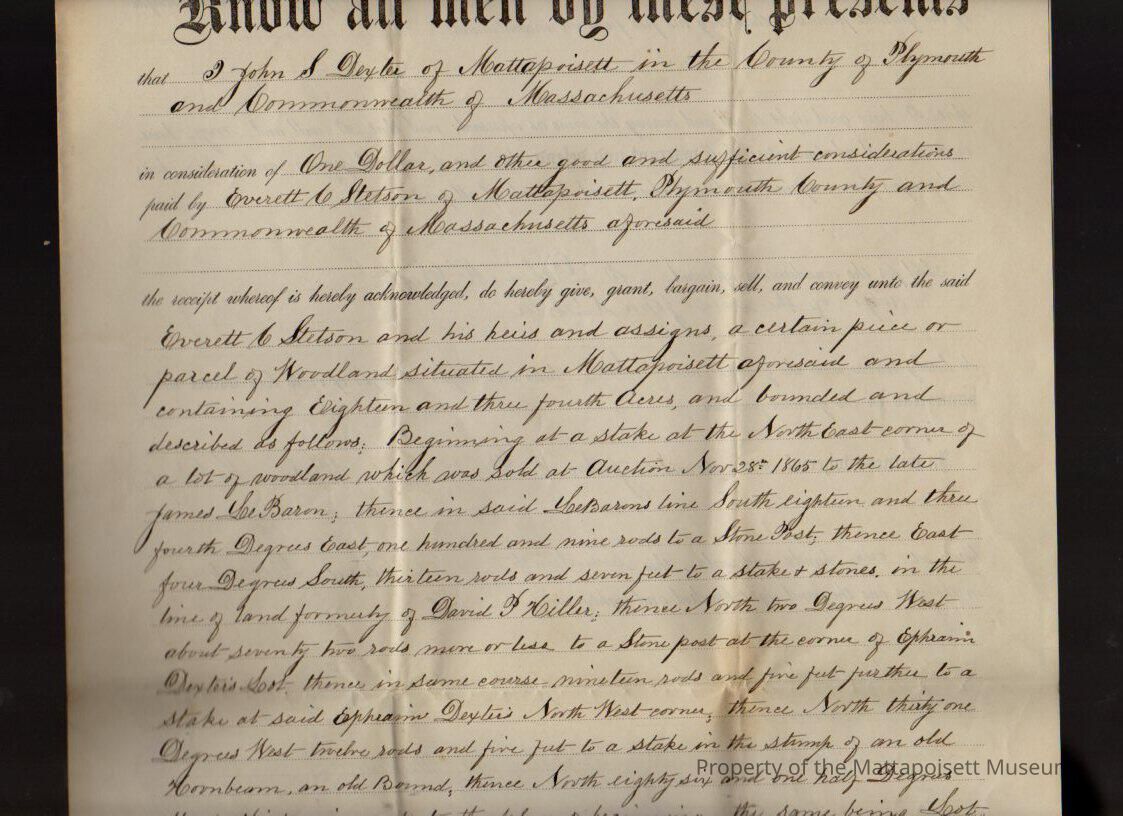 Know all men by these presents
that I John S Dexter of Mattapoisett in the County of Plymouth
and Commonwealth of Massachusetts
in consideration of One Dollar, and other good and sufficient considerations
paid by Everett C Stetson of Mattapoisett, Plymouth County and
Commonwealth of Massachusetts aforesaid
the receipt whereof is hereby acknowledged, do hereby give, grant, bargain, sell, and convey unto the said
Everett C Stetson and his heirs and assigns, a certain piece or
parcel of Woodland situated in Mattapoisett aforesaid and
containing Eighteen and three fourth Acres, and bounded and
described as follows: Beginning at a stake at the North East corner of
a lot of woodland which was sold at Auction Nov 28th 1865 to the late
James Le Baron; thence in said LeBarons line South eighteen and three
fourth Degrees East, one hundred and nine rods to a Stone Post; thence East
four Degrees South, thirteen rods and seven feet to a stake & stones, in the
line of land formerly of David P Hiller; thence North two Degrees West
about seventy two rods more or less to a Stone post at the corner of Ephraim
Dexter's Lot, thence in same course nineteen rods and five feet further to a
stake at said Ephraim Dexter's North West corner; thence North thirty one
Degrees West twelve rods and five feet to a stake in the stump of an old
Hornbeam, an old Bound, thence North eighty six and one half Degrees
the same being Lot
Property of the Mattapoisett Museum